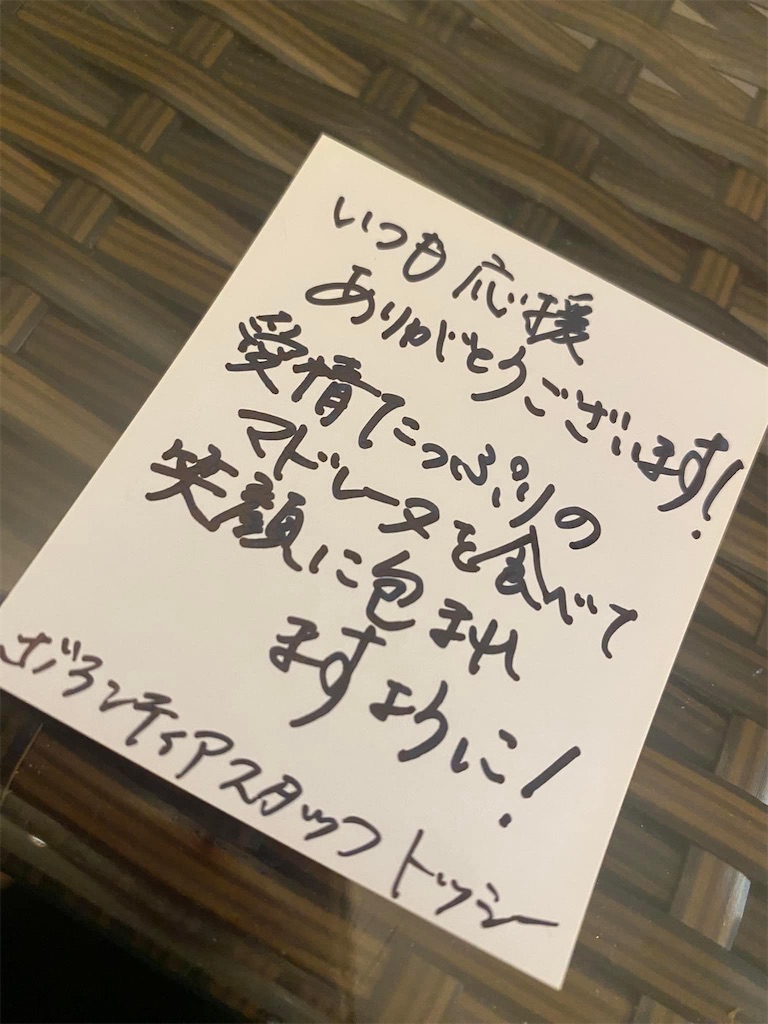 いつも応援
ありがとうございます!
愛情たっぷりの
マドレーヌを食べて
笑顔に包まれ
ますように!
ボランティアスタッフ トッシー